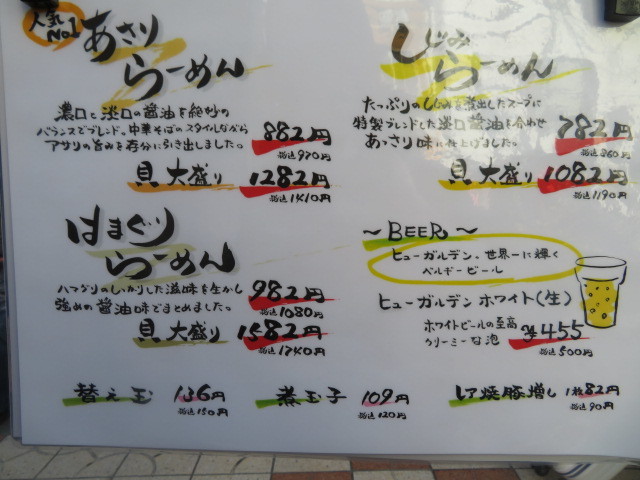 人気
No.1
あさり
らーめん
濃口と淡口の醤油を絶妙の
バランスでブレンド。中華そばのスタイルながら
アサリの旨みを存分に引き出しました。
882円
税込970円
貝大盛り 1282円
税込1410円
しじみ
らーめん
たっぷりのしじみを煮出したスープに
特製ブレンドした淡口醤油を合わせ
あっさり味に仕上げました。
782円
税込860円
貝大盛り 1082円
税込1190円
はまぐり
らーめん
ハマグリのしっかりした滋味を生かし
強めの醤油味でまとめました。
982円
税込1080円
貝大盛り 1582円
税込1740円
～BEER～
ヒューガルデン、世界一に輝く
ベルギービール
ヒューガルデン ホワイト(生)
ホワイトビールの至高
クリーミーな泡
¥455
税込500円
替え玉 136円
税込150円
煮玉子 109円
税込120円
レア焼豚増し 1枚82円
税込90円